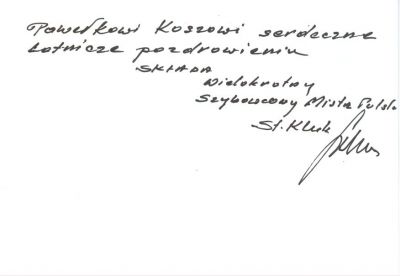 Pawełkowi Koszowi serdeczne
Lotnicze pozdrowieniu
SKŁADA
Wielokrotny
Szybowcowy Mistz Polski
St. Kluk